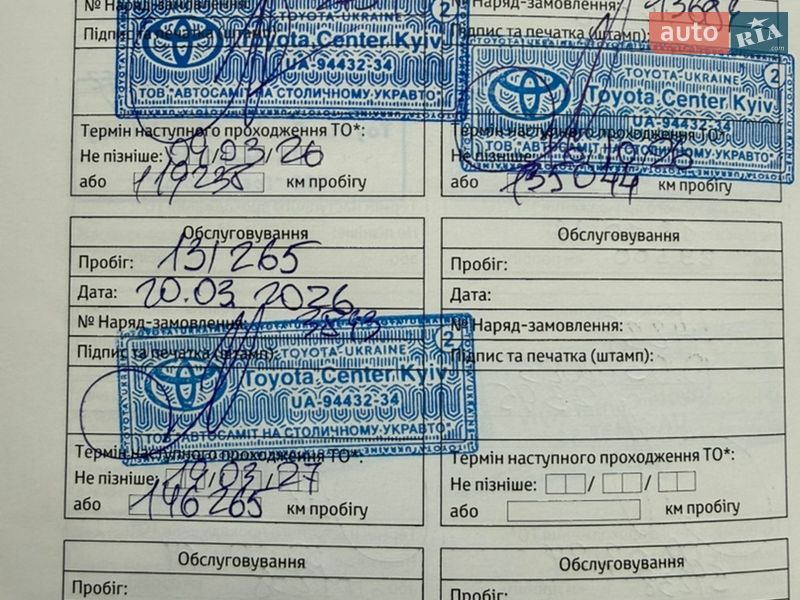 № Наряд-замовлення:
Підпис та печатка (штамп):
TOYOTA-UKRAINE
Toyota Center Kyiv
UA-94432-34
ТОВ "АВТОСАМІТ НА СТОЛИЧНОМУ УКРАВТО"
2
Термін наступного проходження ТО*:
Не пізніше: 09/03/26
або 119235 км пробігу
№ Наряд-замовлення:
Підпис та печатка (штамп):
auto RIA .com
TOYOTA-UKRAINE
Toyota Center Kyiv
UA-94432-34
2
Термін наступного проходження ТО*:
Не пізніше:
або 135044 км пробігу
Обслуговування
Пробіг: 131265
Дата: 20.03.2026
№ Наряд-замовлення:
Підпис та печатка (штамп):
TOYOTA-UKRAINE
Toyota Center Kyiv
UA-94432-34
ТОВ "АВТОСАМІТ НА СТОЛИЧНОМУ УКРАВТО"
2
Термін наступного проходження ТО*:
Не пізніше: 19/03/27
або 146265 км пробігу
Обслуговування
Пробіг:
Дата:
№ Наряд-замовлення:
Підпис та печатка (штамп):
Термін наступного проходження ТО*:
Не пізніше: / /
або км пробігу
Обслуговування
Пробіг:
Обслуговування
Пробіг: